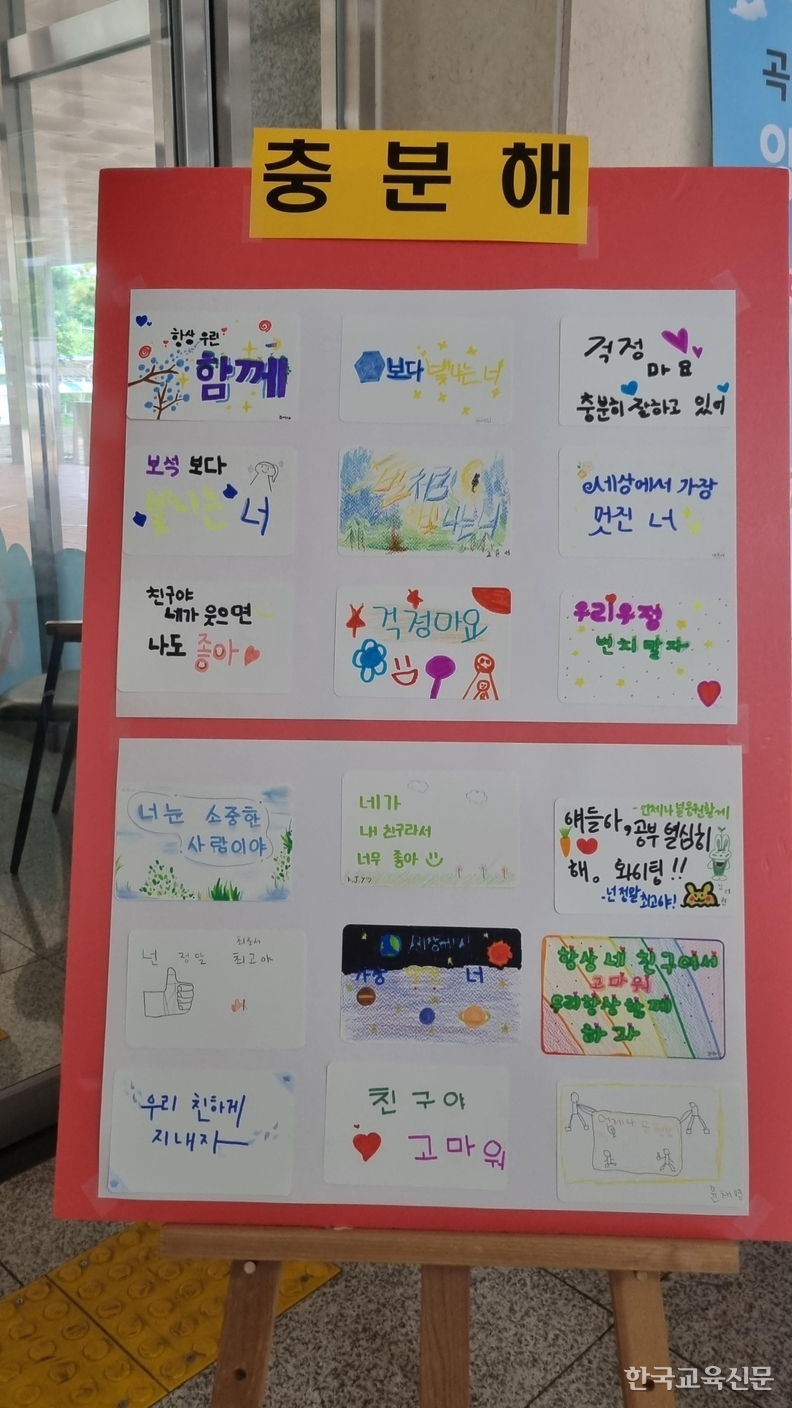 충분해
곡
항상 우린
함께
보다 빛나는 너
걱정
마요
충분히 잘하고 있어
보석 보다
빛나는
너
별처럼
빛나는 너
세상에서 가장
멋진 너
친구야
네가 웃으면
나도 좋아
걱정마요
우리우정
변치말자
너는 소중한
사람이야
네가
내 친구라서
너무 좋아
-언제나 널 응원할게
얘들아, 공부 열심히
해。 화이팅!!
-넌 정말 최고야!
넌 정말 최고야
세상에서
가장 너
항상 네 친구여서
고마워
우리항상 함께
하자
우리 친하게
지내자
친구야
고마워
한국교육신문